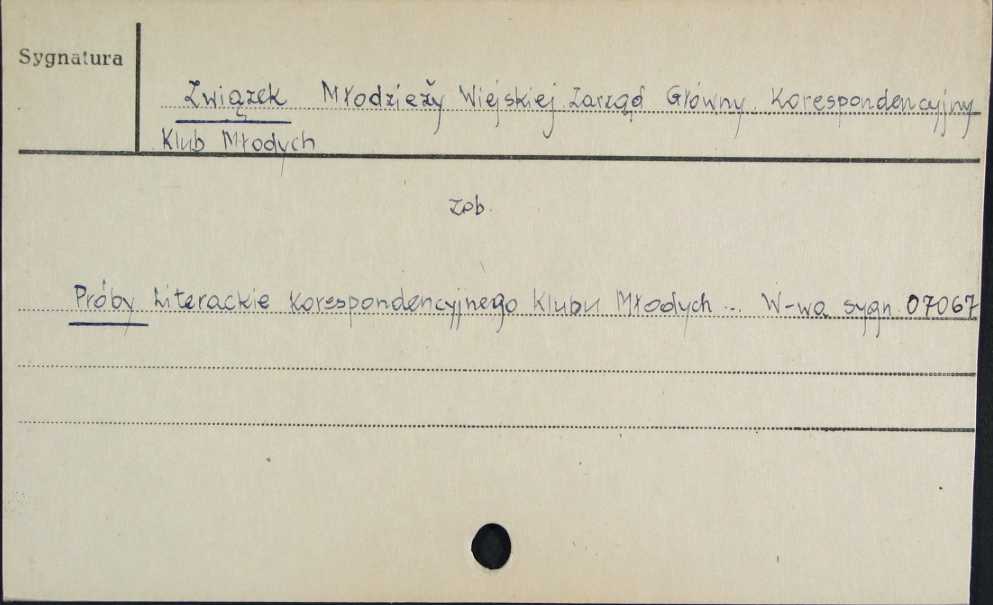 Sygnatura
Związek Młodzieży Wiejskiej. Zarząd Główny. Korespondencyjny
Klub Młodych
zob.
Próby Literackie Korespondencyjnego Klubu Młodych ... W-wa sygn. 07067